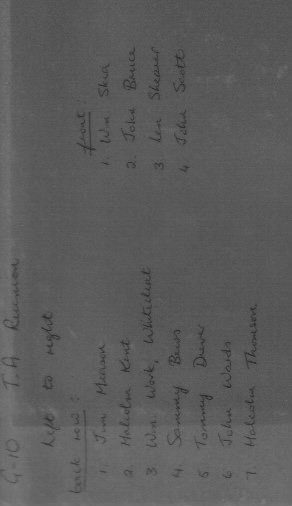 G-10 T.A Reunion
Left to right
back row:
1. Jim
2. Malcolm Kent
3 Wm. Work, Whitehall
4. Sammy Bews
5 Tommy Drever
6 John Wards
7 Malcolm Thomson
front
1. Wm Shea
2. John Bruce
3 Len Shearer
4. John Scott